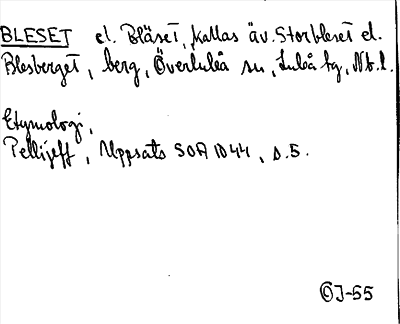 BLESET el. Bläset, kallas äv. Storbleset el.
Blesberget, berg, Överluleå sn, Luleå kg, Nb.l.
Etymologi,
Pellijeff, Uppsats SOA 1044, s.5.
ÖJ-55